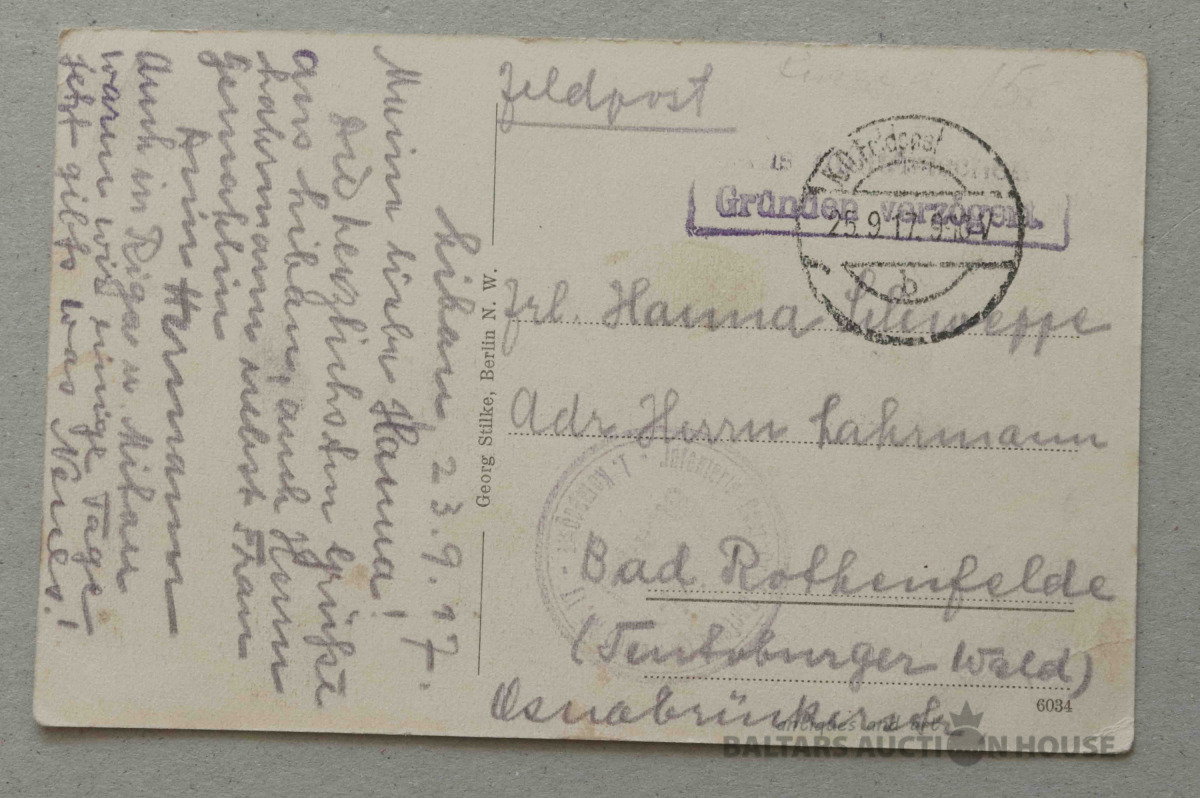 Libau, 23.9.17.
Meine liebe Hanna!
Die herzlichsten Grüße
aus Libau, auch Herrn
Lahrmann nebst Frau
Gemahlin
Dein Hermann
Auch in Riga u. Mitau
waren wir einige Tage
jetzt gibts was Neues!
Georg Stilke, Berlin N. W.
Feldpost
Gründen verzögert.
K.D. Feldpost
25.9.17. 9-10V
b
Frl. Hanna Schweppe
Adr Herrn Lahrmann
Bad Rothenfelde
(Teutoburger Wald)
Osnabrückersch
6034
antiques and art
BALTARS AUCTION HOUSE